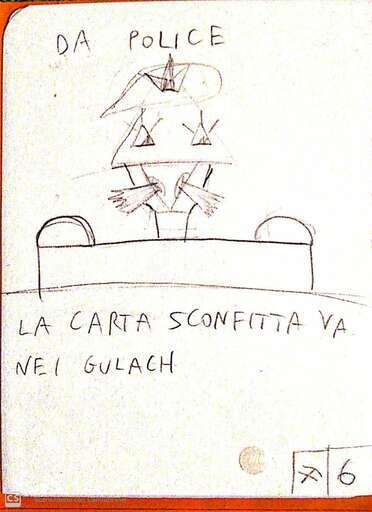 DA POLICE
LA CARTA SCONFITTA VA
NEI GULACH
6
CS